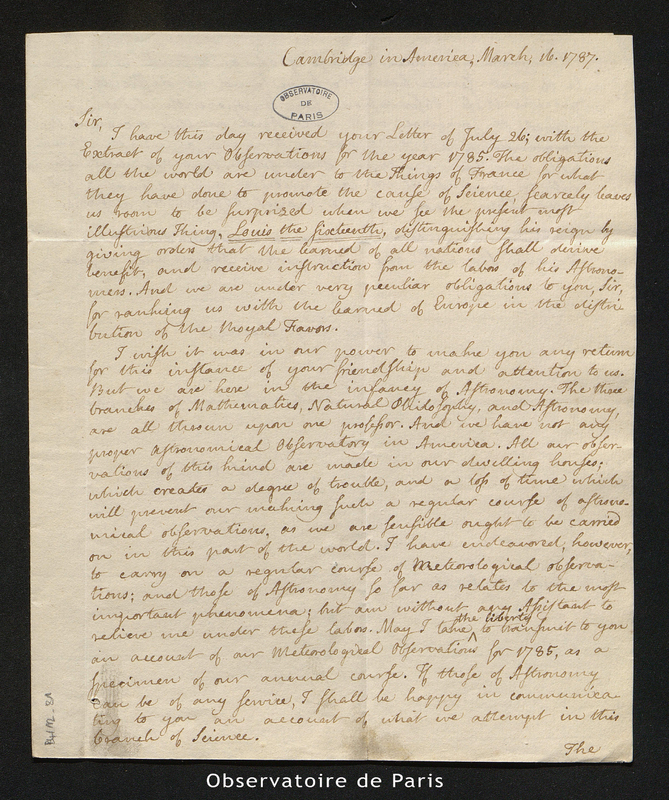 Cambridge in America, March, 16. 1787.
OBSERVATOIRE
DE
PARIS
Sir,
I have this day received your Letter of July 26; with the
Extract of your Observations for the year 1785. The obligations
all the world are under to the Kings of France for what
they have done to promote the cause of Science, scarcely leaves
us room to be surprized when we see the present most
illustrious King, Louis the Sixteenth, distinguishing his reign by
giving orders that the learned of all nations shall derive
benefit, and receive instruction from the labors of his Astrono-
mers. And we are under very peculiar obligations to you, Sir,
for ranking us with the learned of Europe in the distri-
bution of the Royal Favors.
I wish it was in our power to make you any return
for this instance of your friendship and attention to us.
But we are here in the infancy of Astronomy. The three
branches of Mathematics, Natural Philosophy, and Astronomy,
are all thrown upon one professor. And we have not any
proper Astronomical Observatory in America. All our obser-
vations of this kind are made in our dwelling houses;
which creates a degree of trouble, and a loss of time which
will prevent our making such a regular course of astrono-
mical observations, as we are sensible ought to be carried
on in this part of the world. I have endeavored, however,
to carry on a regular course of Meteorological observa-
tions; and those of Astronomy so far as relates to the most
important phenomena; but am without any Assistant to
relieve me under these labors. May I take the liberty to transmit to you
an account of our Meteorological Observations for 1785, as a
specimen of our annual course. If those of Astronomy
can be of any service, I shall be happy in communica-
ting to you an account of what we attempt in this
branch of Science.
The
Observatoire de Paris